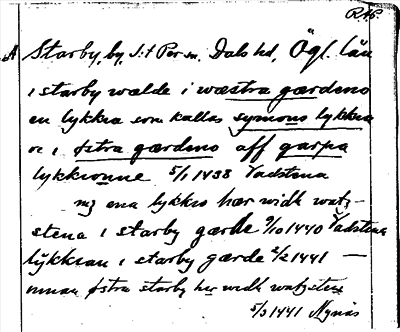 R.A.P.
A Starby, by, S:t Per sn. Dals hd, Ögl. län
i starby wælde i wæstra gærdeno
en lykkia som kallas symons lykkia
oc i østra gærdeno aff garpa
lykkionne 5/1 1438 Vadstena
mz ena lykkio hær widh watz-
stena i starby gærde 9/10 1440 Vadstena
lykkian i starby gærde 2/2 1441 —
innan østra starby her widh watzsten
5/3 1441 Nynäs